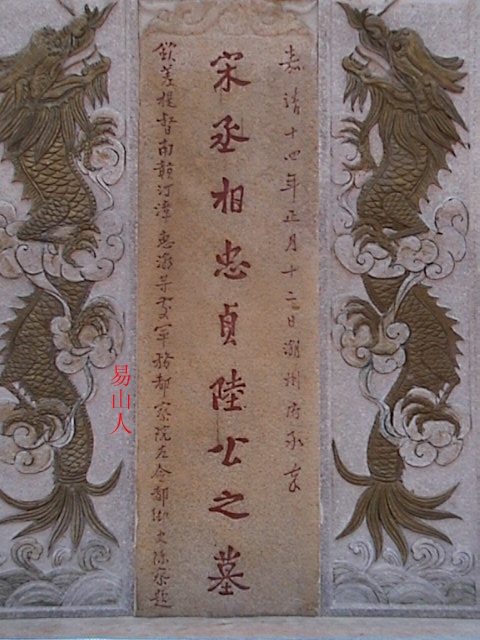 嘉靖十四年正月十二日潮州府承立
宋丞相忠貞陸公之墓
欽差提督南贛汀漳惠潮等處軍務都察院左僉都御史陳察題
易山人